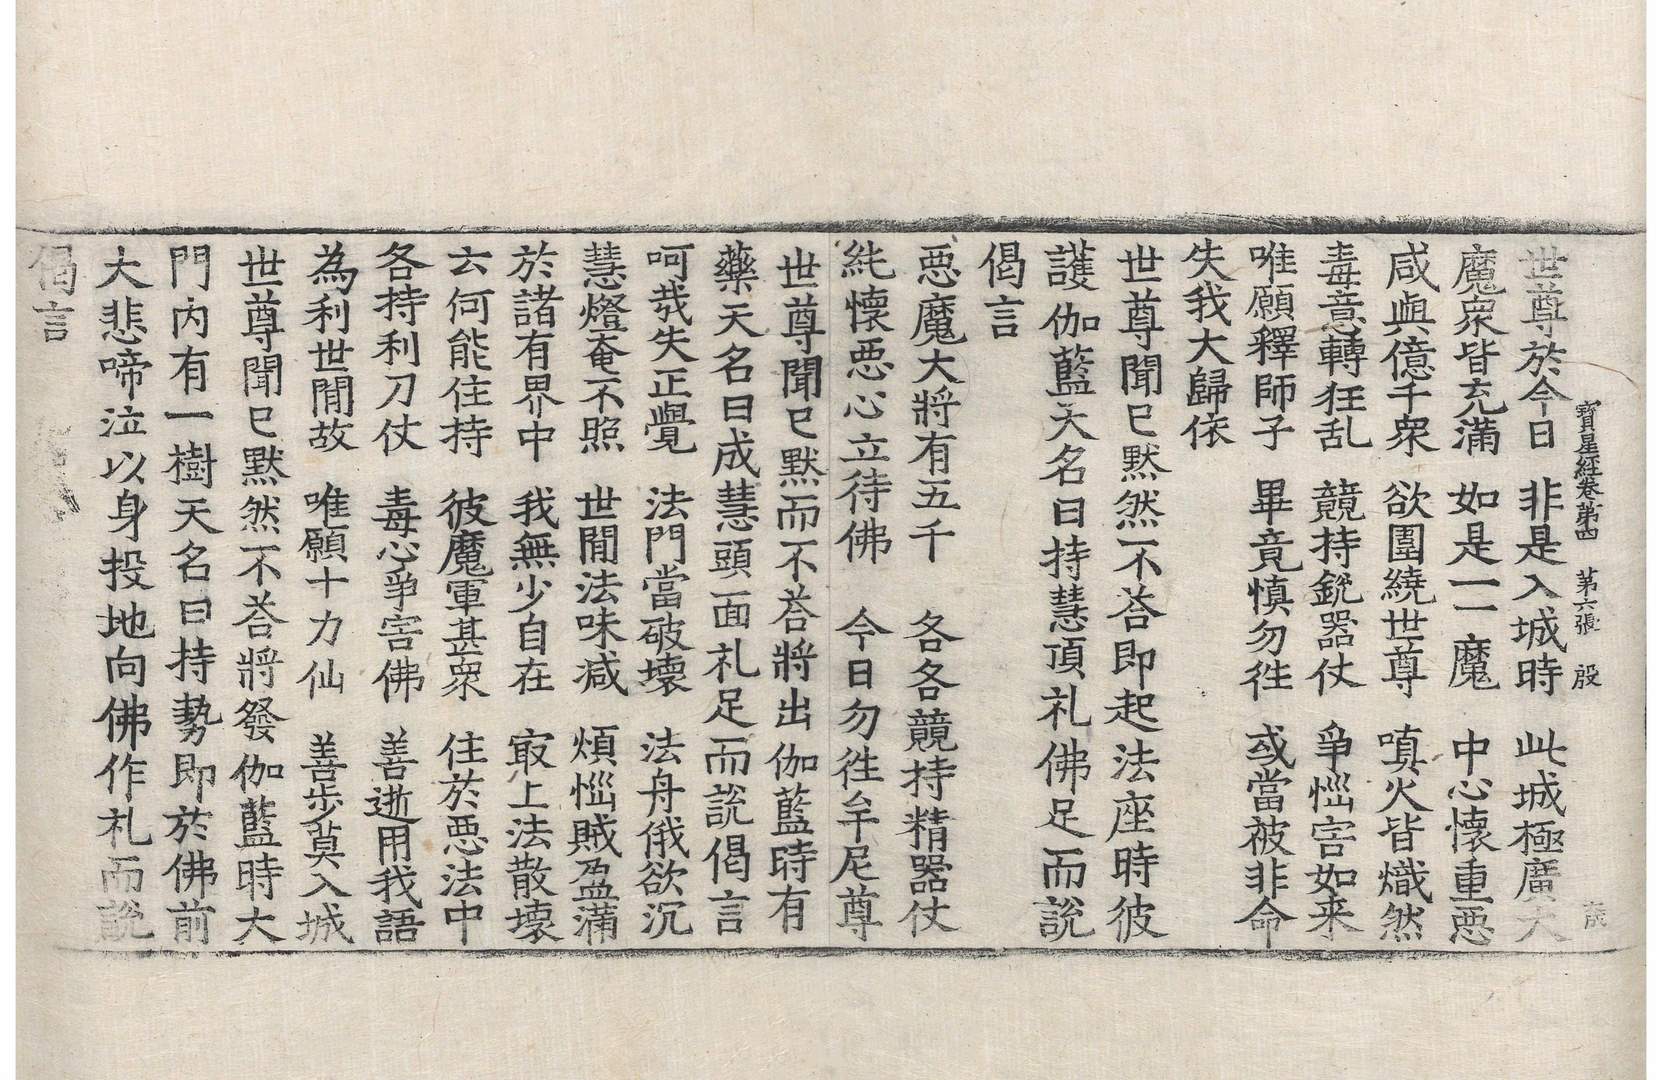 寶星經卷第四　第六張　殷
世尊於今日　非是入城時　此城極廣大
魔衆皆充滿　如是一一魔　中心懷重惡
咸與億千衆　欲圍繞世尊　嗔火皆熾然
毒意轉狂乱　競持銳器仗　爭惱害如来
唯願釋師子　畢竟慎勿往　或當被非命
失我大歸依
世尊聞已黙然不荅即起法座時彼
護伽藍天名曰持慧頂礼佛足而說
偈言
惡魔大將有五千　各各競持精器仗
純懷惡心立待佛　今日勿往牟尼尊
世尊聞已黙而不荅將出伽藍時有
藥天名曰成慧頭面礼足而說偈言
呵㢤失正覺　法門當破壞　法舟俄欲沉
慧燈奄不照　世閒法味减　煩惱賊盈滿
於諸有界中　我無少自在　㝡上法散壞
云何能住持　彼魔軍甚衆　住於惡法中
各持利刀仗　毒心爭害佛　善逝用我語
為利世閒故　唯願十力仙　善步莫入城
世尊聞已黙然不荅將發伽藍時大
門內有一樹天名曰持勢即於佛前
大悲啼泣以身投地向佛作礼而說
偈言